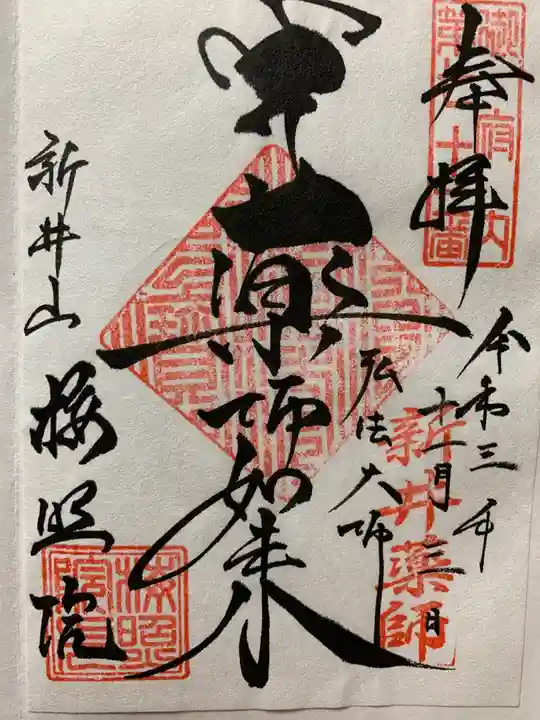 御府内
第七十一番
奉拝
令和三年
十一月
日
新井薬師
弘法大師
薬師如来
新井山
梅照院
梅照
院